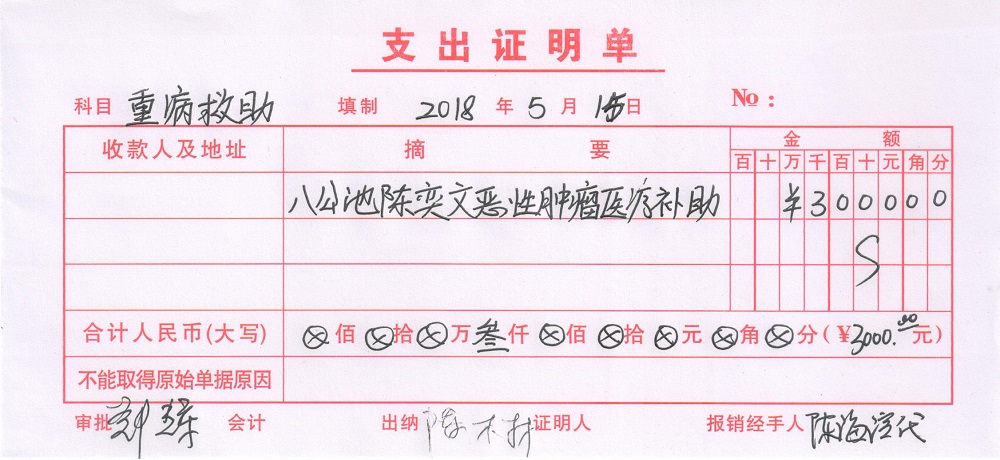 支出证明单
科目 重病救助 填制 2018 年 5 月 15 日 No：
收款人及地址 摘 要 金 额
百 十 万 千 百 十 元 角 分
八公池陈奕文恶性肿瘤医疗补助 ¥300000
合计人民币(大写) ⊗佰⊗拾⊗万叁仟⊗佰⊗拾⊗元⊗角⊗分(¥3000.00元)
不能取得原始单据原因
审批 会计 出纳 证明人 报销经手人 陈海滢代